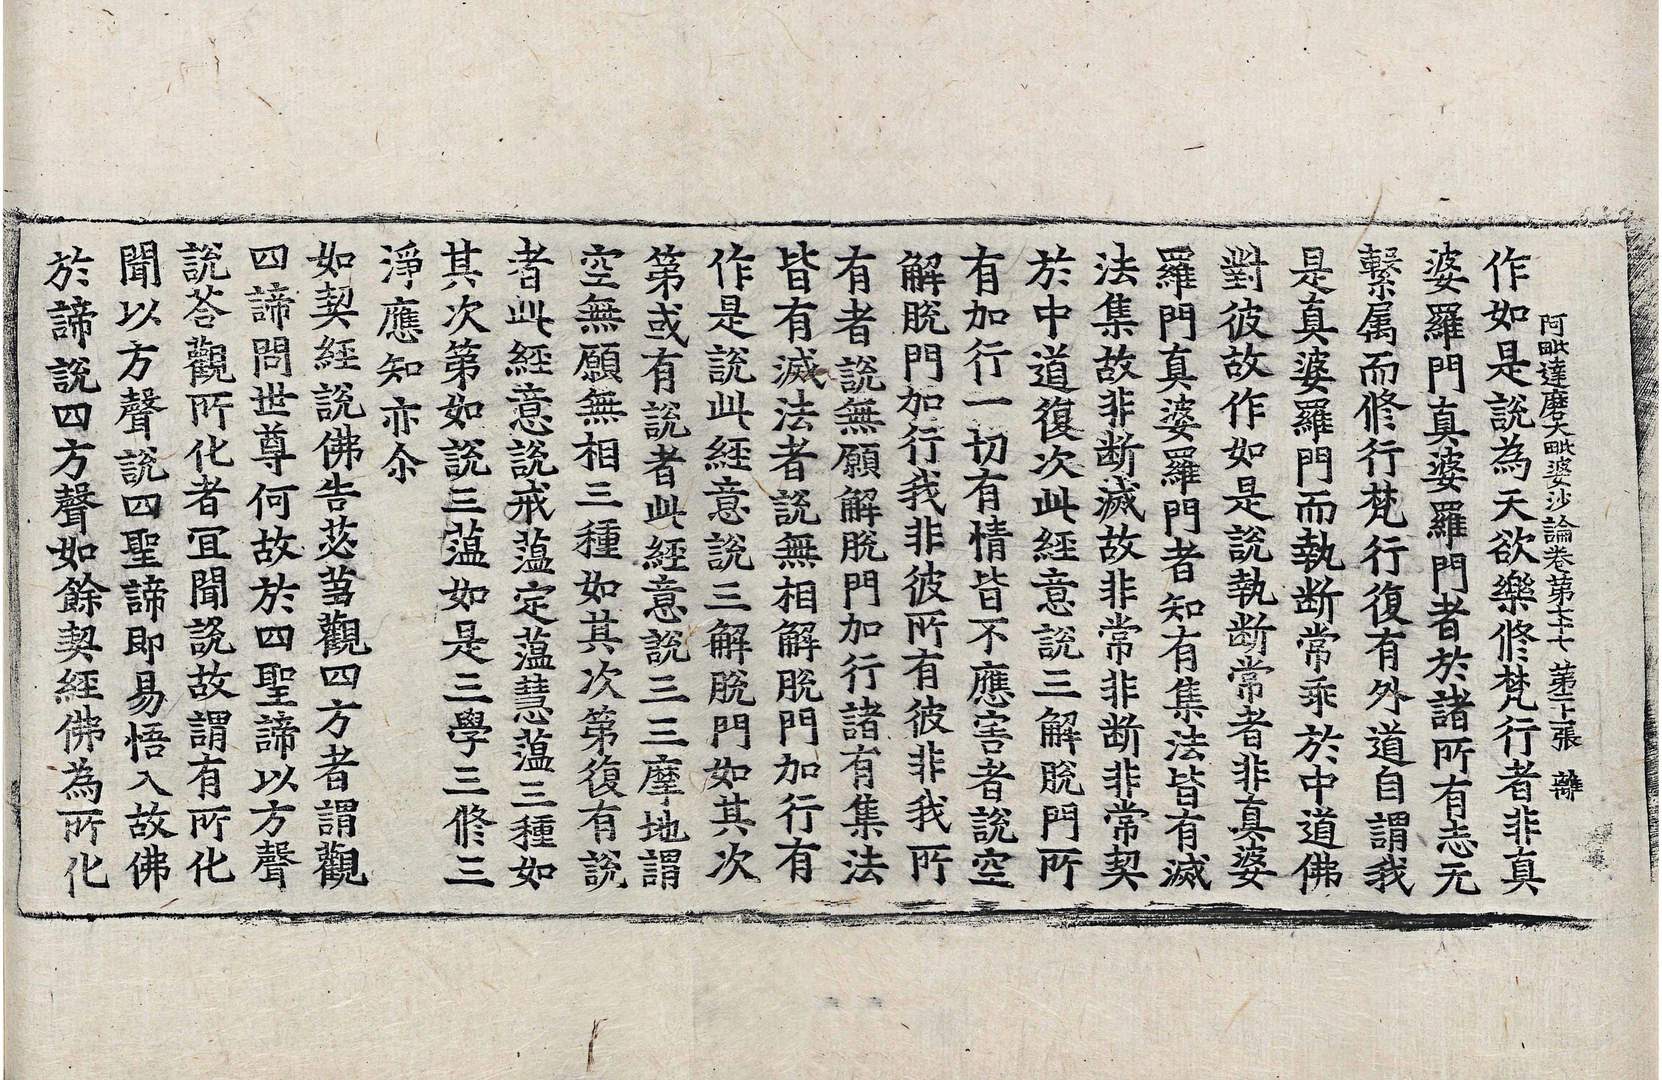 阿毗達磨大毗婆沙論卷第七十七 第二十張 離
作如是說為天欲樂修梵行者非真
婆羅門真婆羅門者於諸所有志无
繫属而修行梵行復有外道自謂我
是真婆羅門而執断常乖於中道佛
對彼故作如是說執断常者非真婆
羅門真婆羅門者知有集法皆有滅
法集故非断滅故非常非断非常契
於中道復次此經意說三解脫門所
有加行一切有情皆不應害者說空
解脫門加行我非彼所有彼非我所
有者說無願解脫門加行諸有集法
皆有滅法者說無相解脫門加行有
作是說此經意說三解脫門如其次
第或有說者此經意說三三摩地謂
空無願無相三種如其次第復有說
者此經意說戒蕰定蕰慧蕰三種如
其次第如說三蕰如是三學三修三
淨應知亦尒
如契經說佛告苾芻觀四方者謂觀
四諦問世尊何故於四聖諦以方聲
說荅觀所化者冝聞說故謂有所化
聞以方聲說四聖諦即易悟入故佛
於諦說四方聲如餘契經佛為所化